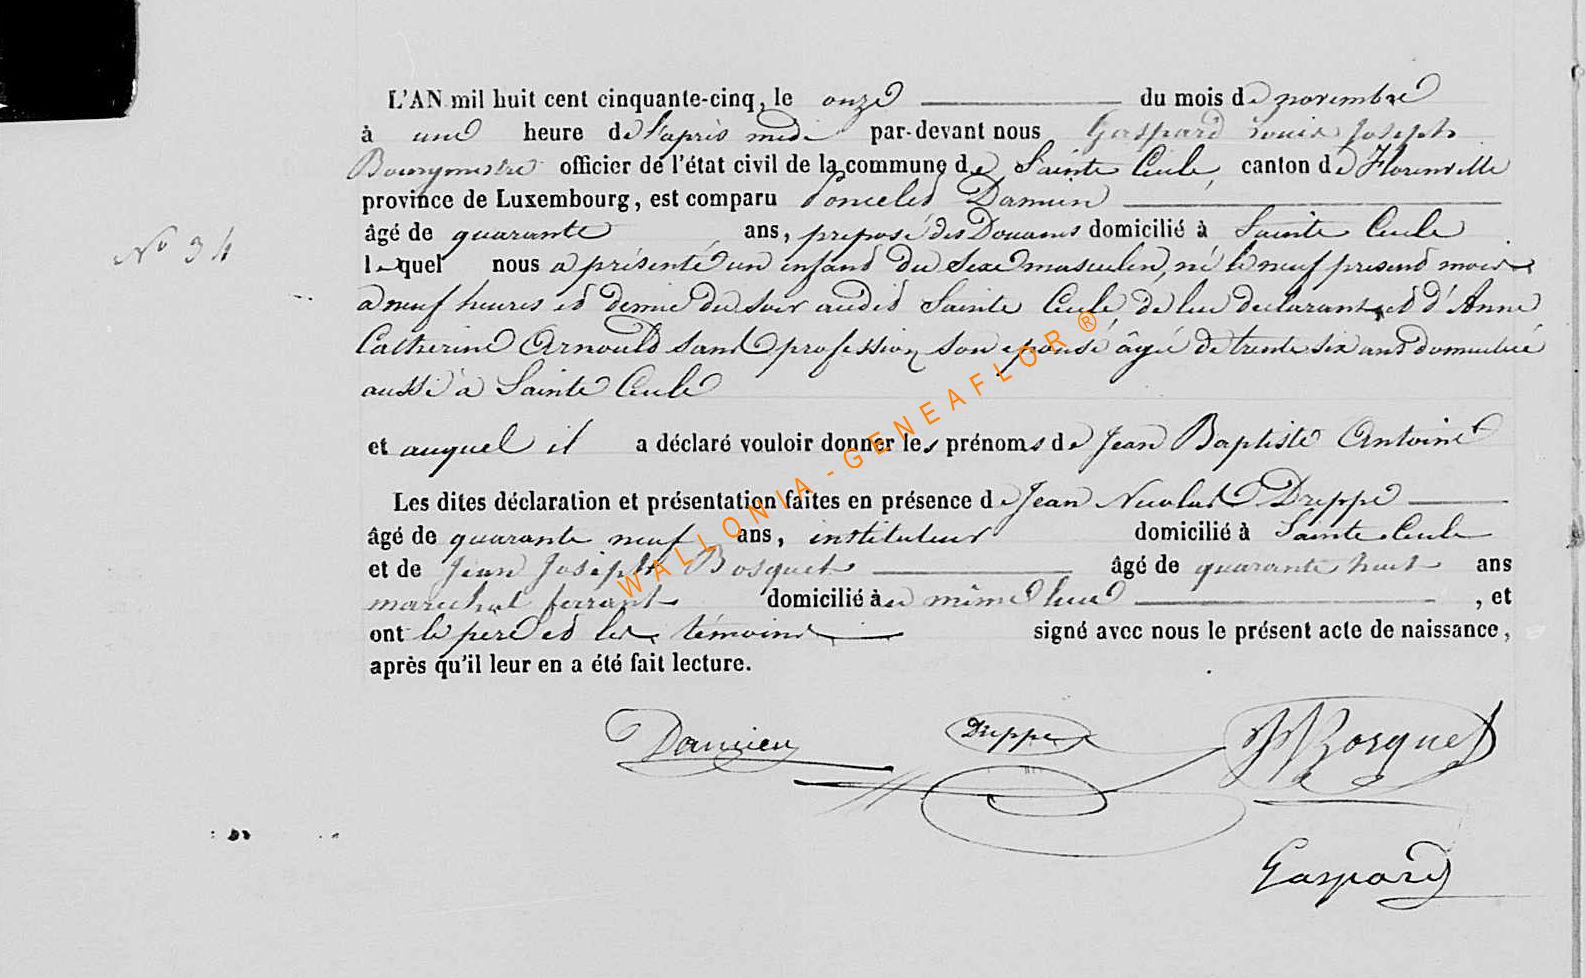 L'AN mil huit cent cinquante-cinq, le onze du mois de novembre
à une heure de l'après midi par-devant nous Gaspard Louis Joseph
Bourgmestre officier de l'état civil de la commune de Sainte Cecile, canton de Florenville
province de Luxembourg, est comparu Poncelet Damien
N° 34
âgé de quarante ans, préposé des Douanes domicilié à Sainte Cecile
lequel nous a présenté un enfant du Sexe masculin, né le neuf present mois
a neuf heures et demie du soir audit Sainte Cecile de lui declarant et d'Anne
Catherine Arnould sans profession son epouse âgée de trente six ans domiciliée
aussi à Sainte Cecile
et auquel il a déclaré vouloir donner les prénoms de Jean Baptiste Antoine
Les dites déclaration et présentation faites en présence de Jean Nicolas Dreppe
âgé de quarante neuf ans, instituteur domicilié à Sainte Cecile
et de Jean Joseph Bosquet âgé de quarante huit ans
marechal ferrant domicilié à au même lieu, et
ont le père et les témoins signé avec nous le présent acte de naissance,
après qu'il leur en a été fait lecture.
Damien Dreppe JJ Bosquet
Gaspard
WALLONIA-GENEAFLOR ®